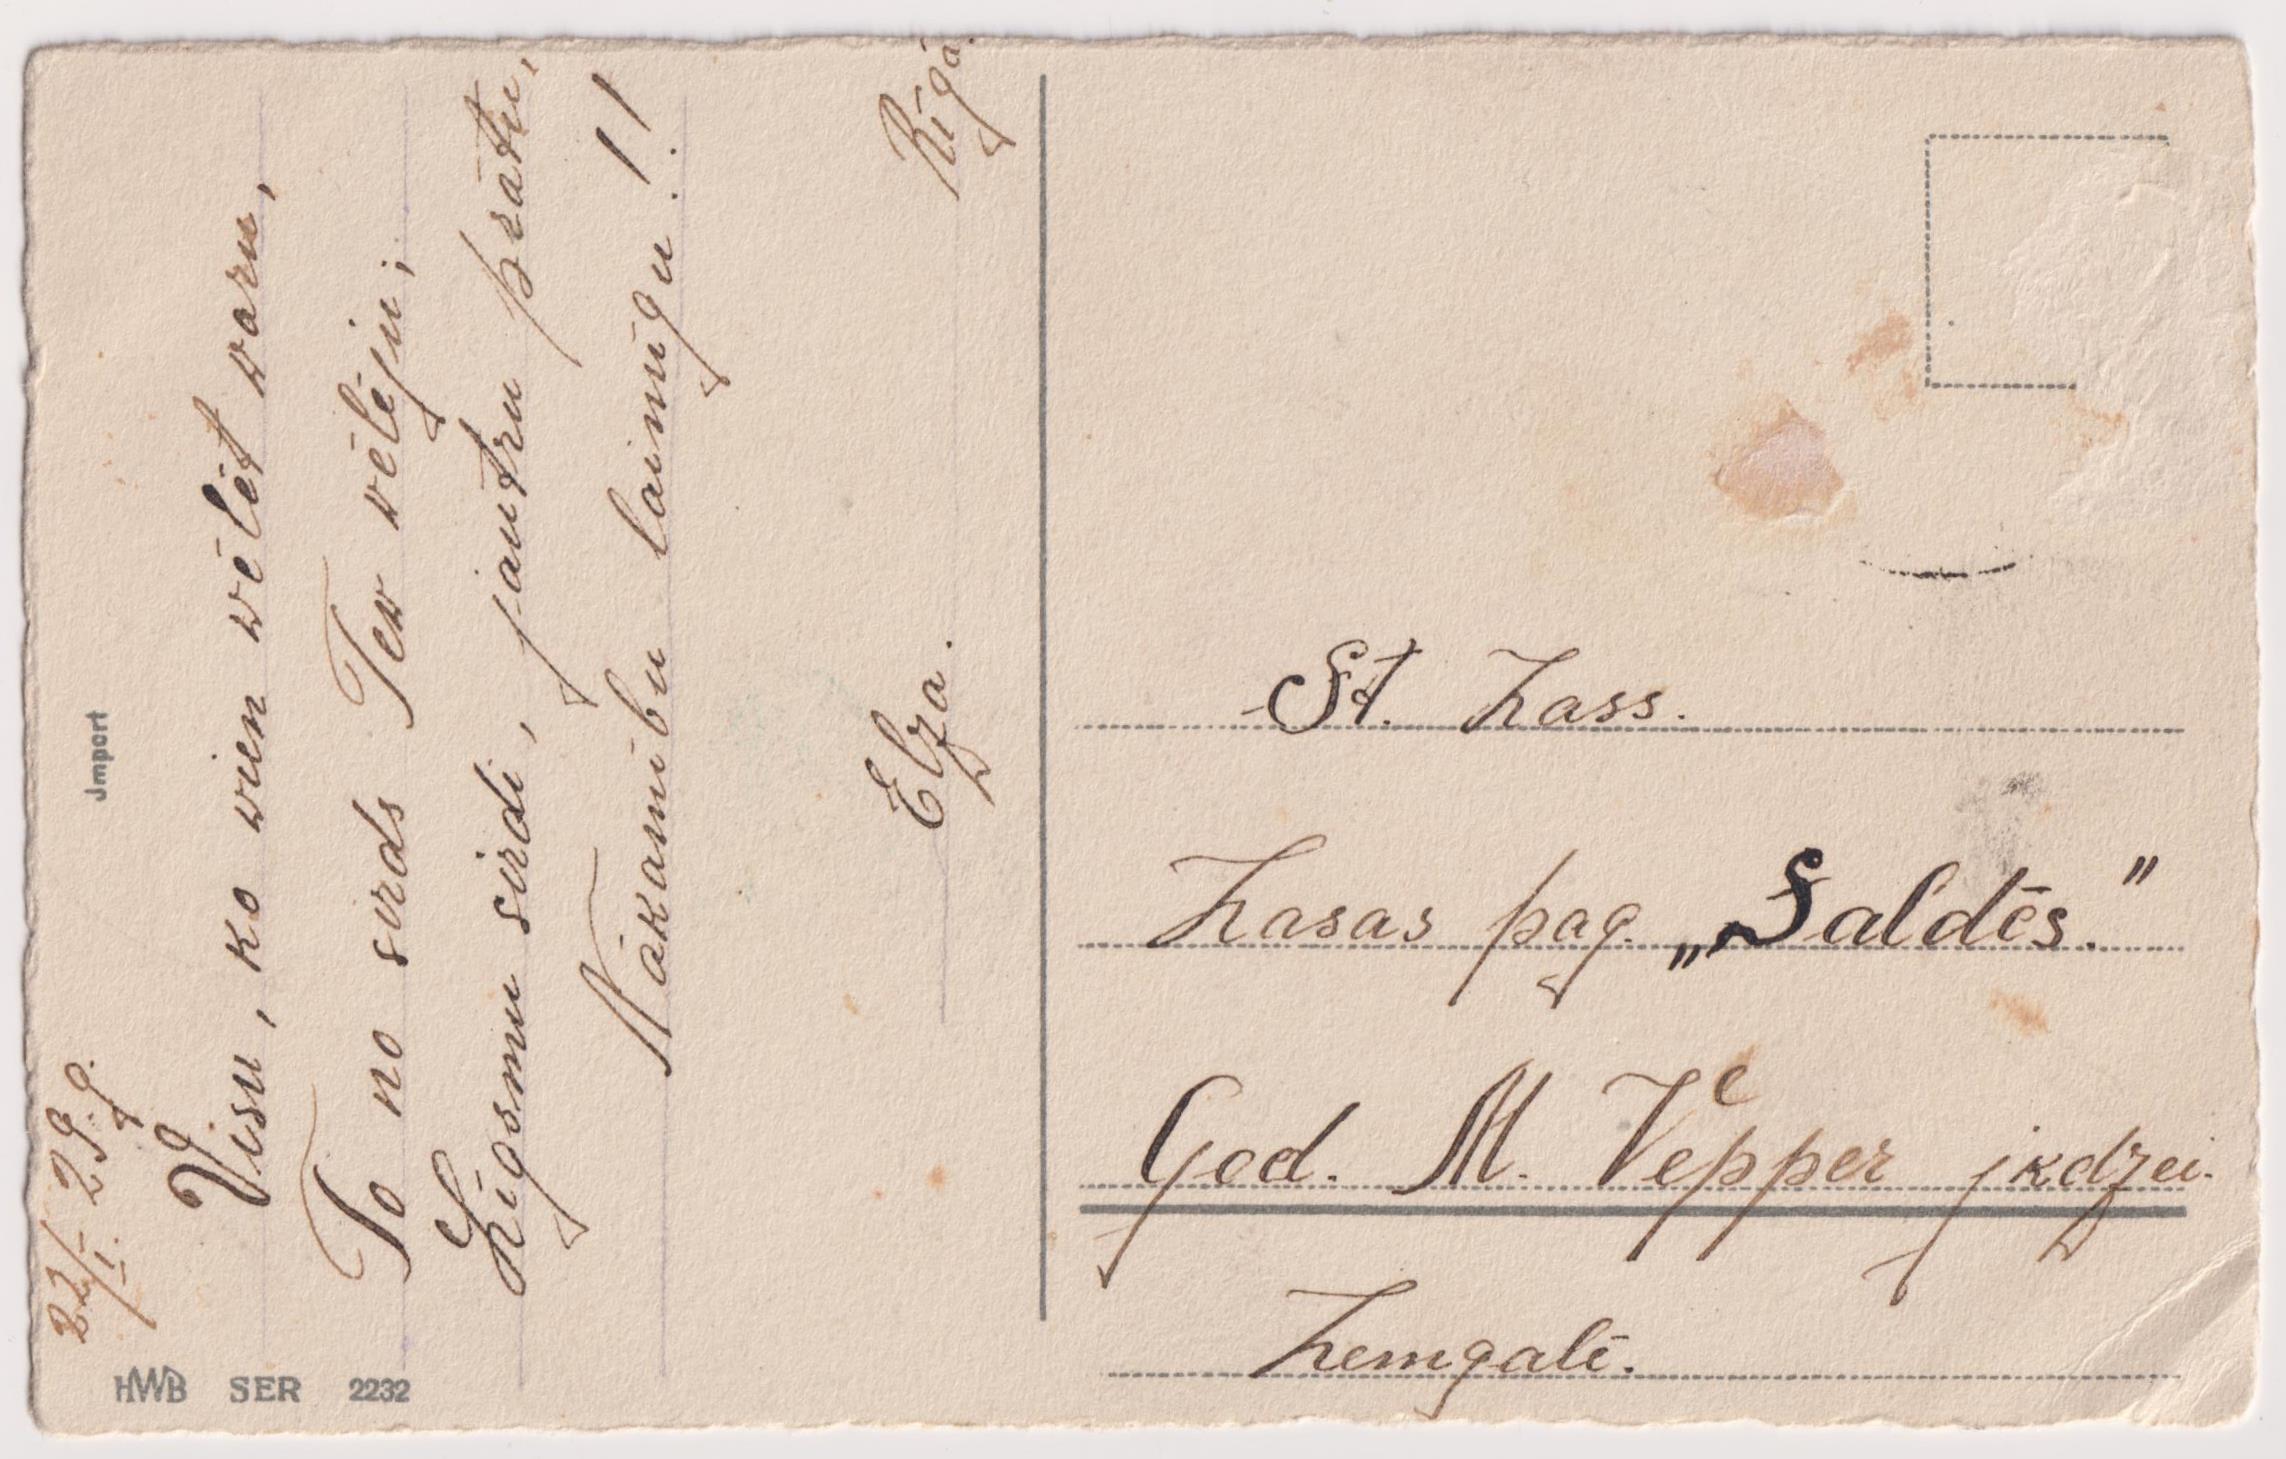 22/I. 29. g.
Visu, ko vien vēlēt varu,
To no sirds Tev vēlēju;
Līgsmu sirdi, jautru prātu,
Nākamību laimīgu!!
Elza.
Rīgā.
Jmport
HWB SER 2232
St. Zass.
Zasas pag. „Saldēs."
God. M. Vepper jkdzei.
Zemgalē.